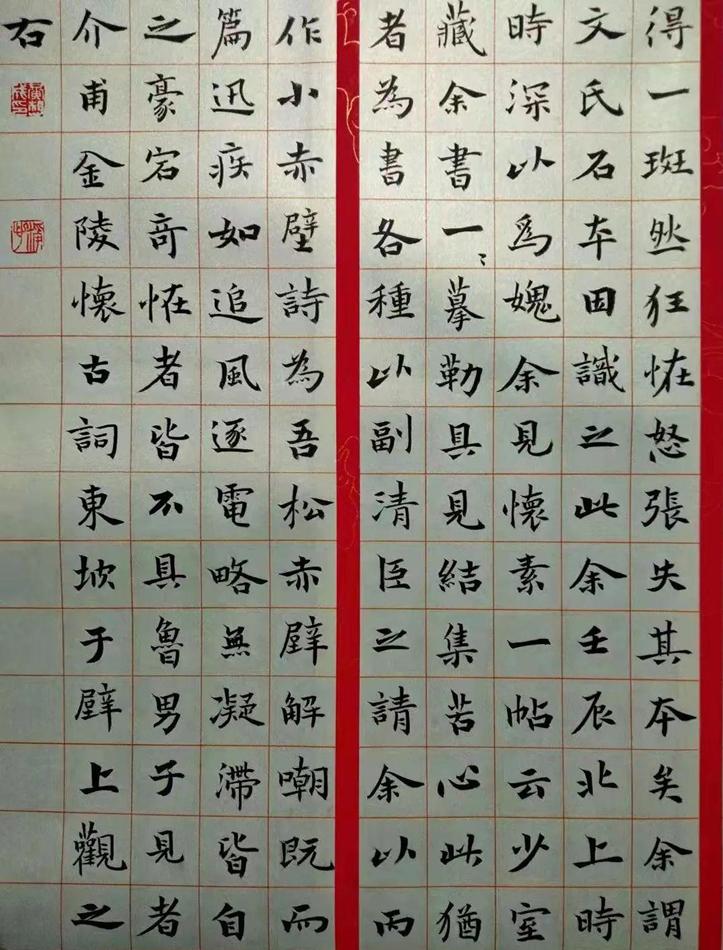 得一斑然狂恠怒張失其本矣余謂
文氏石本因識之此余壬辰北上時
時深以爲媿余見懷素一帖云少室
藏余書一〻摹勒具見結集苦心此猶
者為書各種以副清臣之請余以丙
作小赤壁詩為吾松赤壁解嘲既而
篇迅疾如追風逐電略無凝滯皆自
之豪宕奇恠者皆不具魯男子見者
介甫金陵懷古詞東坡于壁上觀之
右